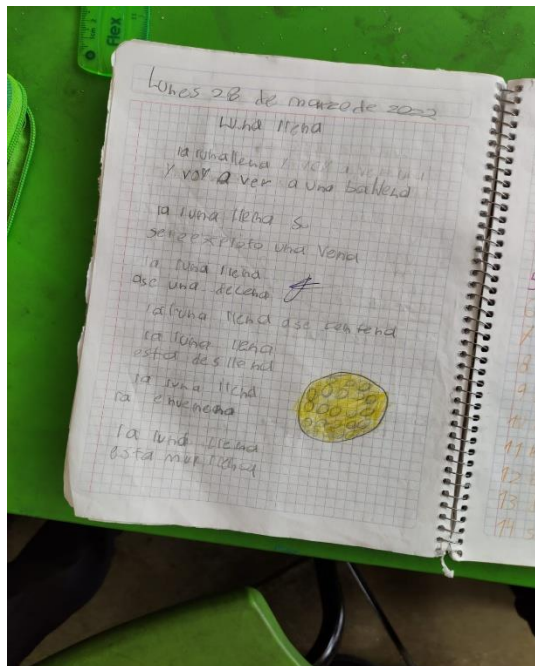 flex
Lunes 28 de marzo de 2022
Luna llena
la luna llena
y voy a ver a una ballena
la luna llena s
se le exploto una vena
la luna llena
ase una decena
la luna llena ase
la luna llena
esta des llena
la luna llena
la envenena
la luna llena
esta muy llena
8
9
10
11
12
13
14 s